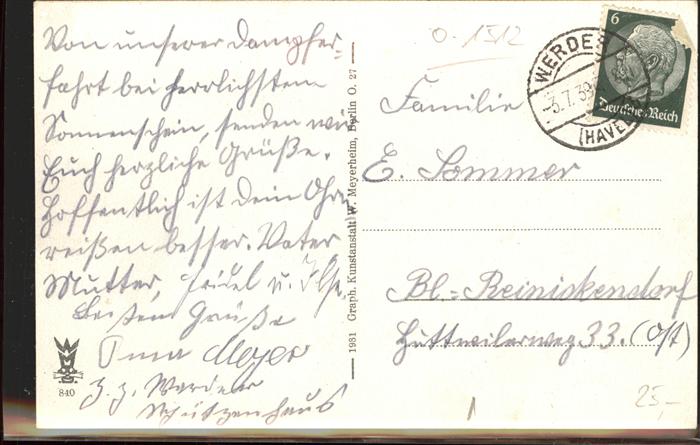 Von unserer Dampfer-
fahrt bei herrlichstem
Sonnenschein, senden wir
Euch herzliche Grüße.
Hoffentlich ist dein Ohren-
reißen besser. Vater
Mutter, Fridel u. Ilse.
Besten Grüße
Oma Meyer
z. Z. Werder
Schützenhaus
840
1931 Graph. Kunstanstalt W. Meyerheim, Berlin O. 27
O-1512
WERDER
-3.7.39
(HAVEL)
6
Deutsches Reich
Familie
E. Sommer
Bl-Reinickendorf
Huttwilerweg 33. (Ost)
25,-